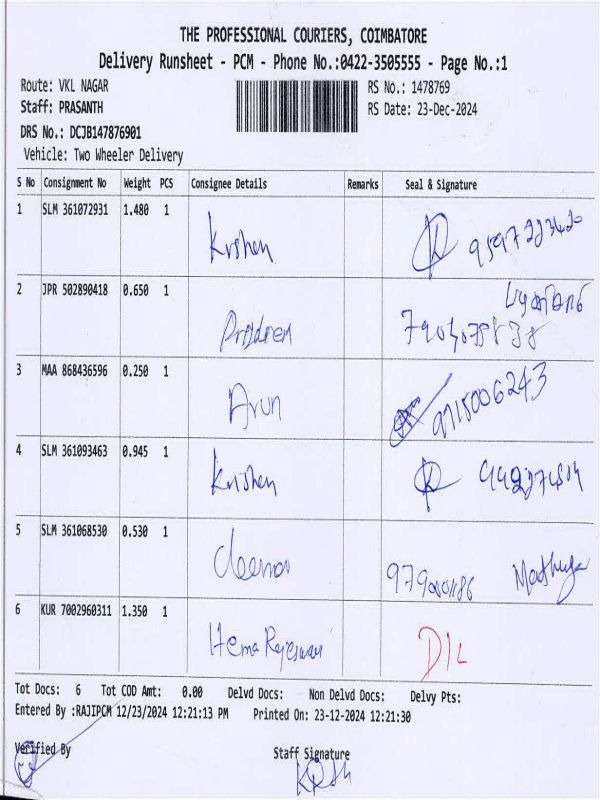 THE PROFESSIONAL COURIERS, COIMBATORE
Delivery Runsheet - PCM - Phone No.:0422-3505555 - Page No.:1
Route: VKL NAGAR
RS No.: 1478769
Staff: PRASANTH
RS Date: 23-Dec-2024
DRS No.: DCJB147876901
Vehicle: Two Wheeler Delivery
S No Consignment No Weight PCS Consignee Details Remarks Seal & Signature
1 SLM 361072931 1.480 1 Krishen
2 JPR 502890418 0.650 1
3 MAA 868436596 0.250 1 Arun 9715006243
4 SLM 361093463 0.945 1 Krishen
5 SLM 361068530 0.530 1
6 KUR 7002960311 1.350 1 Hema Rajeswari D/L
Tot Docs: 6 Tot COD Amt: 0.00 Delvd Docs: Non Delvd Docs: Delvy Pts:
Entered By :RAJIPCM 12/23/2024 12:21:13 PM Printed On: 23-12-2024 12:21:30
Verified By Staff Signature